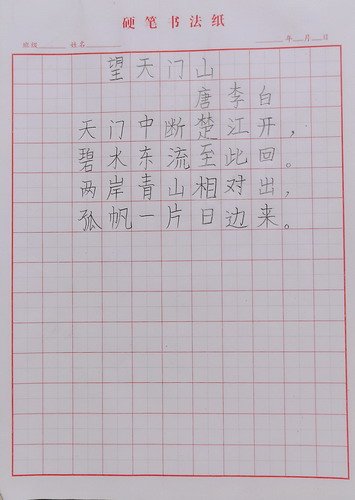 硬笔书法纸
班级 姓名 年 月 日
望天门山
唐 李白
天门中断楚江开，
碧水东流至此回。
两岸青山相对出，
孤帆一片日边来。